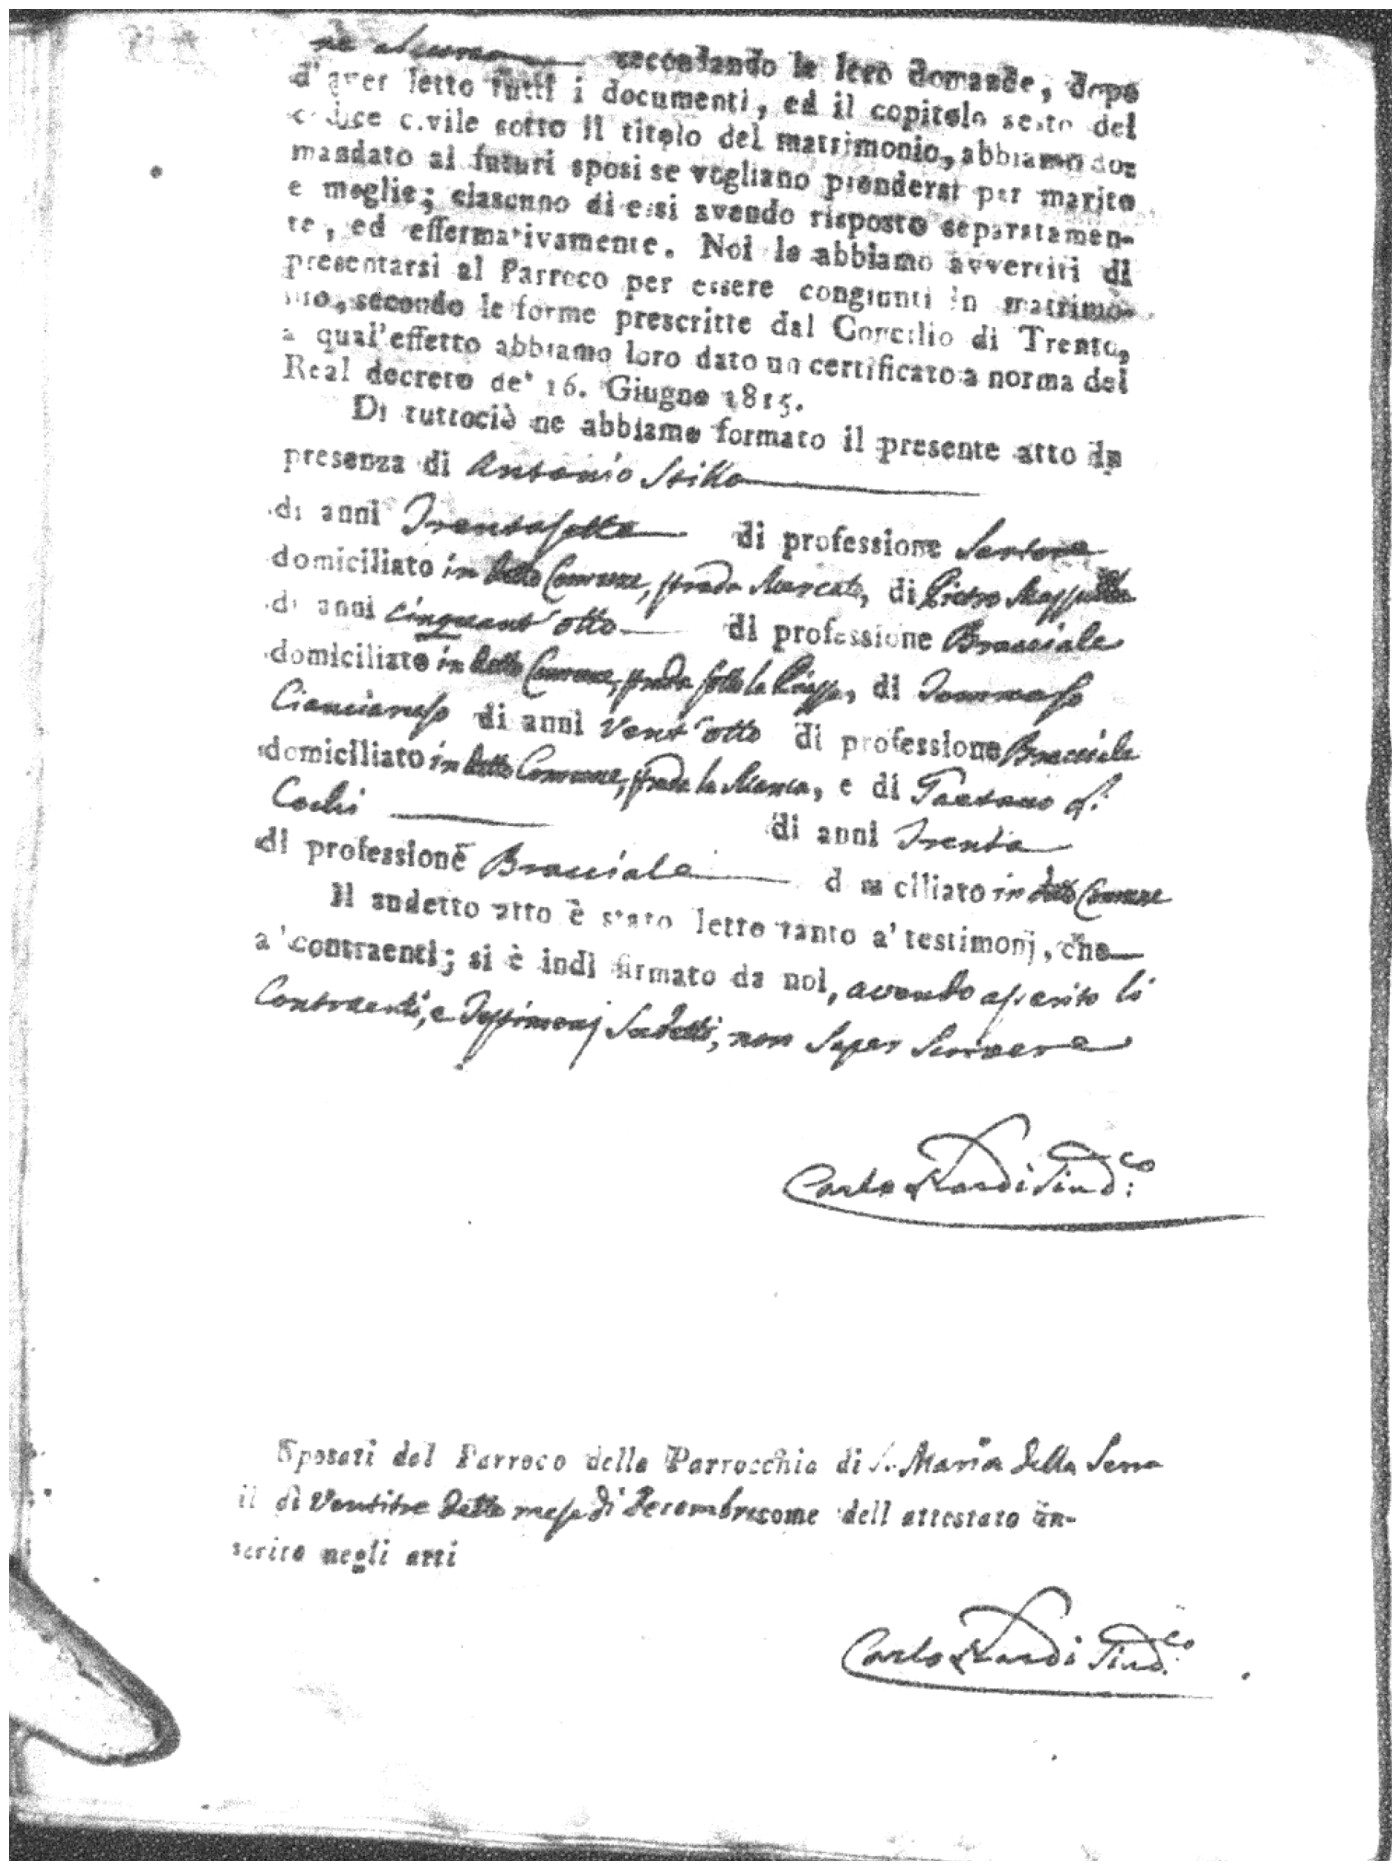 secondando le loro domande, dopo
d'aver letto tutti i documenti, ed il copitolo sesto del
codice civile sotto il titolo del matrimonio, abbiamo do=
mandato ai futuri sposi se vogliano prendersi per marito
e moglie; ciascuno di essi avendo risposto separatamen-
te, ed effermativamente. Noi le abbiamo avvertiti di
presentarsi al Parroco per essere congiunti in matrimo-
nio, secondo le forme prescritte dal Concilio di Trento,
a qual'effetto abbiamo loro dato un certificato a norma del
Real decreto de' 16. Giugno 1815.
Di tuttociò ne abbiamo formato il presente atto in
presenza di Antonio Stillo
di anni Trentasette di professione Sartore
domiciliato in detto Comune, strada Mercato, di Pietro
di anni cinquant'otto di professione Bracciale
domiciliato in detto Comune, strada sotto la Piazza, di Tommaso
Cianciaruso di anni vent'otto di professione Bracciale
domiciliato in detto Comune, strada la Manca, e di Gaetano
di anni Trenta
di professione Bracciale domiciliato in detto Comune
Il sudetto atto è stato letto tanto a' testimonj, che
a' contraenti; si è indi firmato da noi, avendo asserito li
Contraenti, e Testimonj Sudetti, non saper scrivere
Carlo Nardi Sind.co
Sposati dal Parroco della Parrocchia di S. Maria della Serra
il dì Ventitre detto mese di Decembre come dell attestato in-
serito negli atti
Carlo Nardi Sind.co